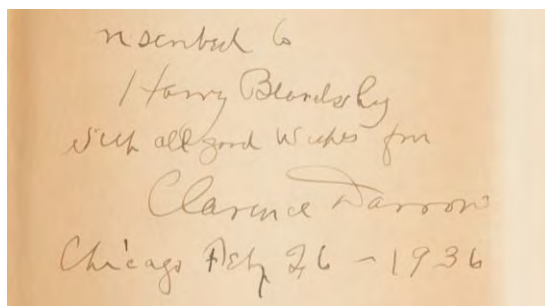 Inscribed to
Harry Beardsley
with all good wishes from
Clarence Darrow
Chicago Feby 26 - 1936